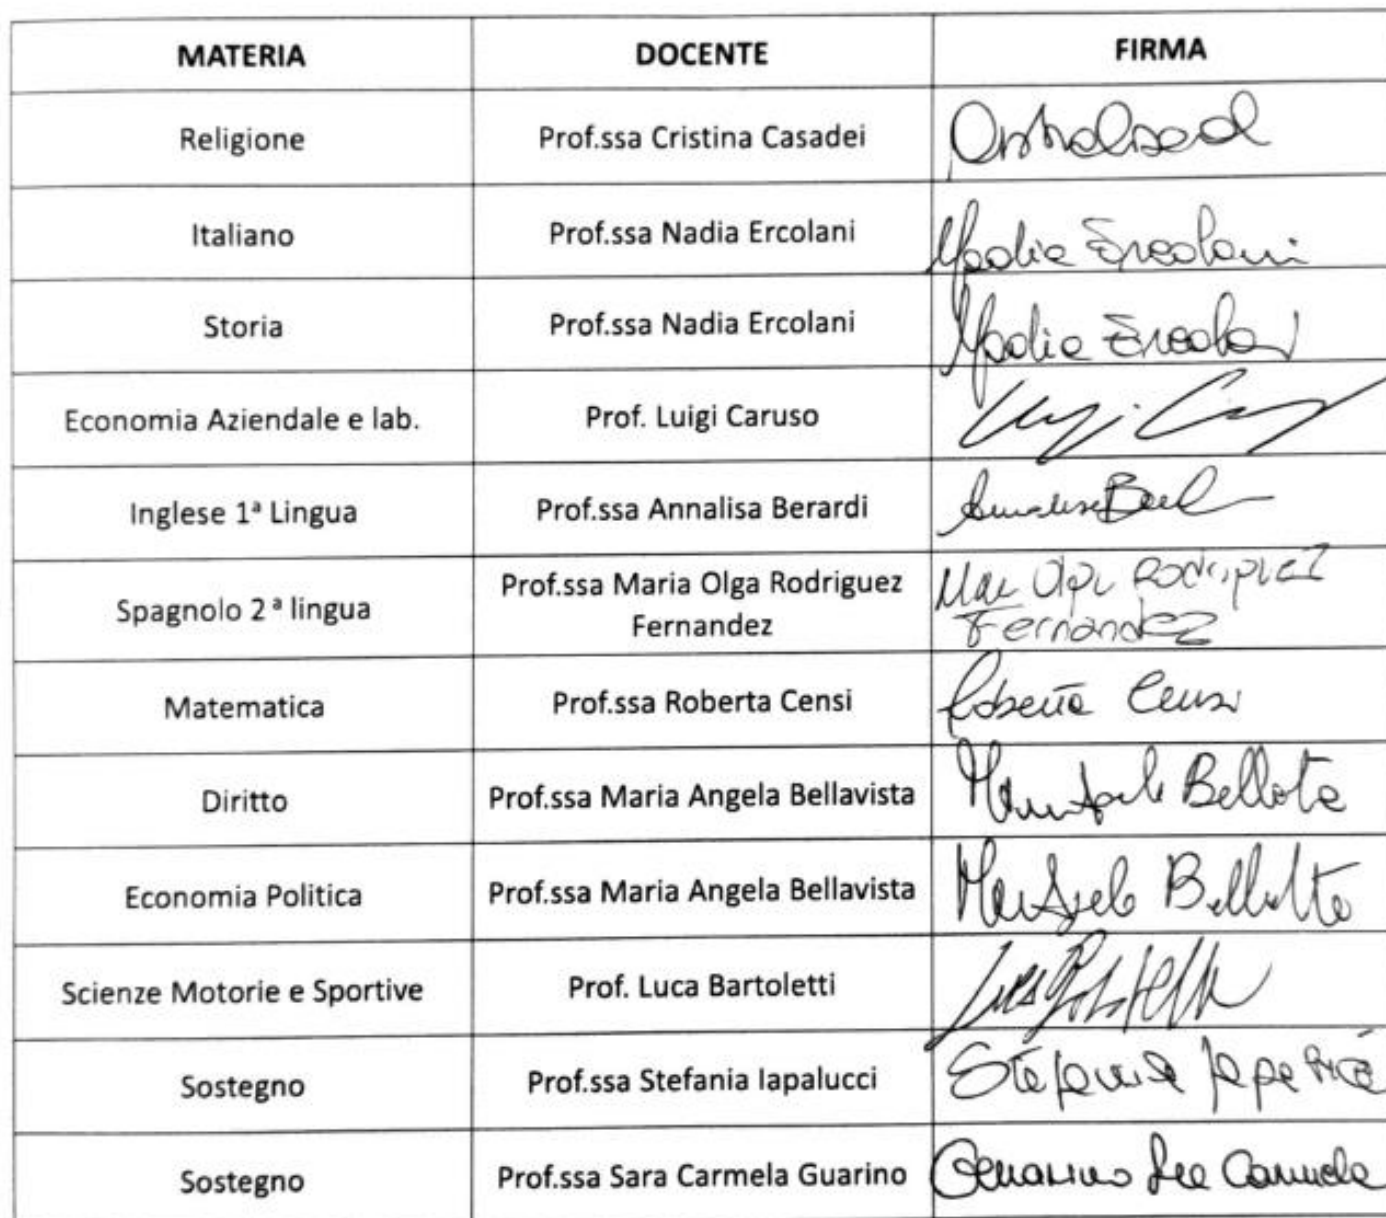 MATERIA DOCENTE FIRMA
Religione Prof.ssa Cristina Casadei
Italiano Prof.ssa Nadia Ercolani Nadia Ercolani
Storia Prof.ssa Nadia Ercolani Nadia Ercolani
Economia Aziendale e lab. Prof. Luigi Caruso
Inglese 1ª Lingua Prof.ssa Annalisa Berardi
Spagnolo 2 ª lingua Prof.ssa Maria Olga Rodriguez Rodriguez
Fernandez Fernandez
Matematica Prof.ssa Roberta Censi Roberta Censi
Diritto Prof.ssa Maria Angela Bellavista
Economia Politica Prof.ssa Maria Angela Bellavista
Scienze Motorie e Sportive Prof. Luca Bartoletti
Sostegno Prof.ssa Stefania Iapalucci Stefania
Sostegno Prof.ssa Sara Carmela Guarino Guarino Sara Carmela